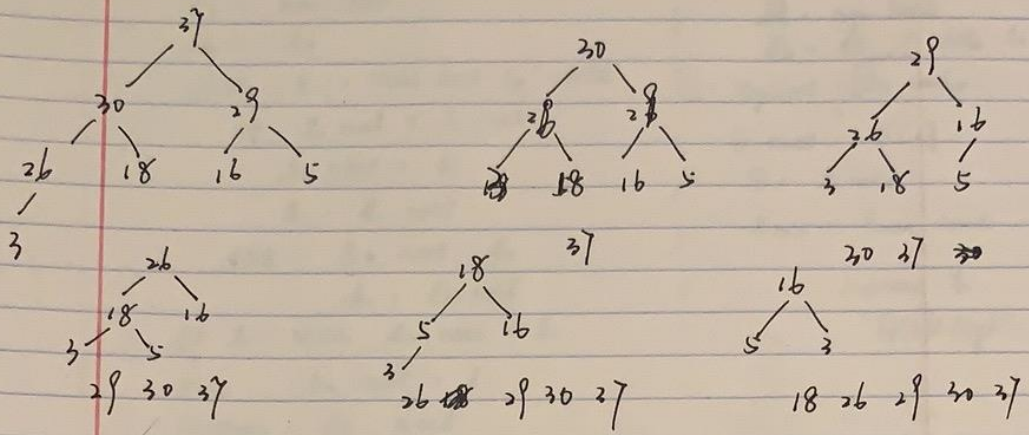 37
30 29
26 18 16 5
3
30
18 16 5
37
29
26 16
3 18 5
30 37
26
18 16
3 5
29 30 37
18
5 16
3
26 29 30 37
16
5 3
18 26 29 30 37